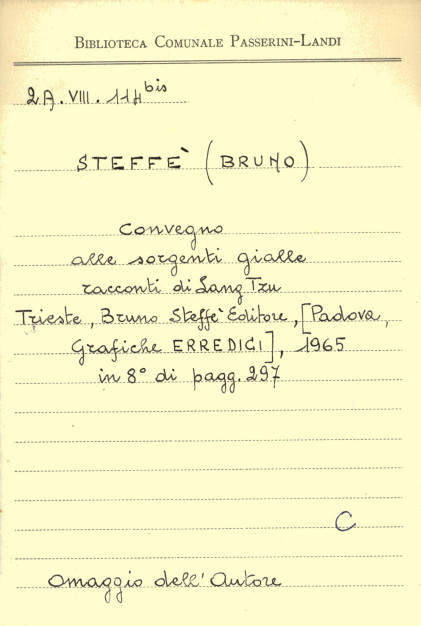 BIBLIOTECA COMUNALE PASSERINI-LANDI
2A. VIII. 114 bis
STEFFE` (BRUNO)
Convegno
alle sorgenti gialle
racconti di Lang Tzu
Trieste, Bruno Steffe` Editore, [Padova,
Grafiche ERREDICI], 1965
in 8° di pagg. 297
C
Omaggio dell'Autore